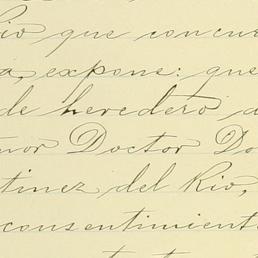 Rio que concur
a, expone: que
de heredero a
nor Doctor Do
tinez del Rio,
consentimient